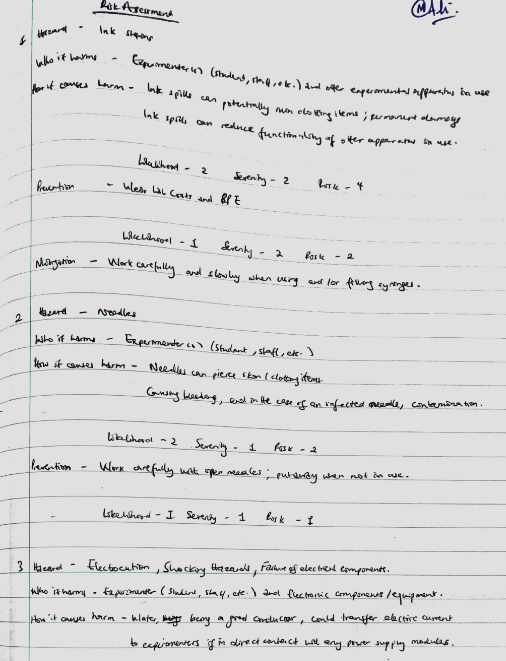 Risk Assessment
MAli.
1 Hazard - Ink stains
Who it harms - Experimenter(s) (student, staff, etc.) and other experimental apparatus in use
How it causes harm - Ink spills can potentially ruin clothing items; permanent damage
Ink spills can reduce functionality of other apparatus in use.
Likelihood - 2 Severity - 2 Risk - 4
Prevention - Wear Lab Coats and PPE
Likelihood - 1 Severity - 2 Risk - 2
Mitigation - Work carefully and slowly when using and/or filling syringes.
2 Hazard - Needles
Who it harms - Experimenter(s) (student, staff, etc.)
How it causes harm - Needles can pierce skin / clothing items.
Causing bleeding, and in the case of an infected needle, contamination.
Likelihood - 2 Severity - 1 Risk - 2
Prevention - Work carefully with open needles; put away when not in use.
Likelihood - 1 Severity - 1 Risk - 1
3 Hazard - Electrocution, Shocking Hazards, Failure of electrical components.
Who it harms - Experimenter (student, staff, etc.) and electronic components / equipment.
How it causes harm - Water, being a good conductor, could transfer electric current
to experimenters if in direct contact with any power supply modules.